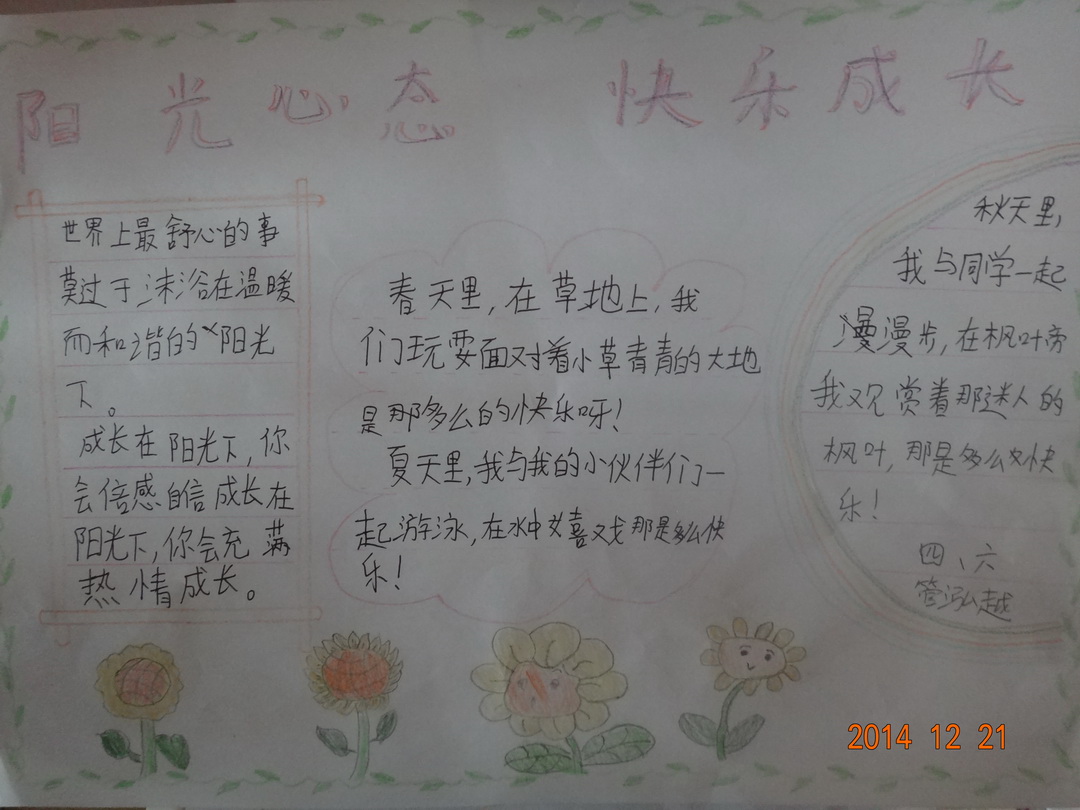 阳光心态 快乐成长
世界上最舒心的事
莫过于沐浴在温暖
而和谐的阳光
下。
成长在阳光下,你
会倍感自信成长在
阳光下,你会充满
热情成长。
春天里,在草地上,我
们玩耍面对着小草青青的大地
是那多么的快乐呀!
夏天里,我与我的小伙伴们一
起游泳,在水中嬉戏那是多么快
乐!
秋天里,
我与同学一起
漫漫步,在枫叶帝
我观赏着那迷人的
枫叶,那是多么快
乐!
四、六
管泓越
2014 12 21